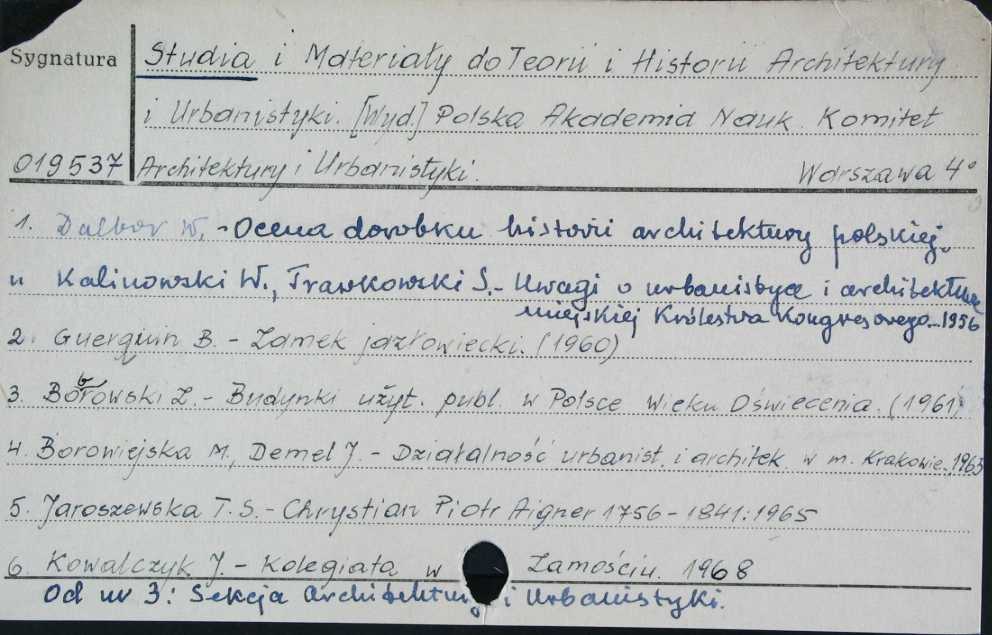 Sygnatura Studia i Materiały do Teorii i Historii Architektury
i Urbanistyki. [Wyd.] Polska Akademia Nauk. Komitet
019537 Architektury i Urbanistyki. Warszawa 4°
1. Dalbor W. - Ocena dorobku historii architektury polskiej.
" Kalinowski W., Trawkowski S. - Uwagi o urbanistyce i architekturze
miejskiej Królestwa Kongresowego. 1956
2. Guerquin B. - Zamek jazłowiecki. (1960)
3. Borowski Z. - Budynki użyt. publ. w Polsce Wieku Oświecenia. (1961)
4. Borowiejska M., Demel J. - Działalność urbanist. i architek. w m. Krakowie. 1963
5. Jaroszewska T. S. - Chrystian Piotr Aigner 1756 - 1841. 1965
6. Kowalczyk J. - Kolegiata w Zamościu. 1968
Od nr 3: Sekcja Architektury i Urbanistyki.